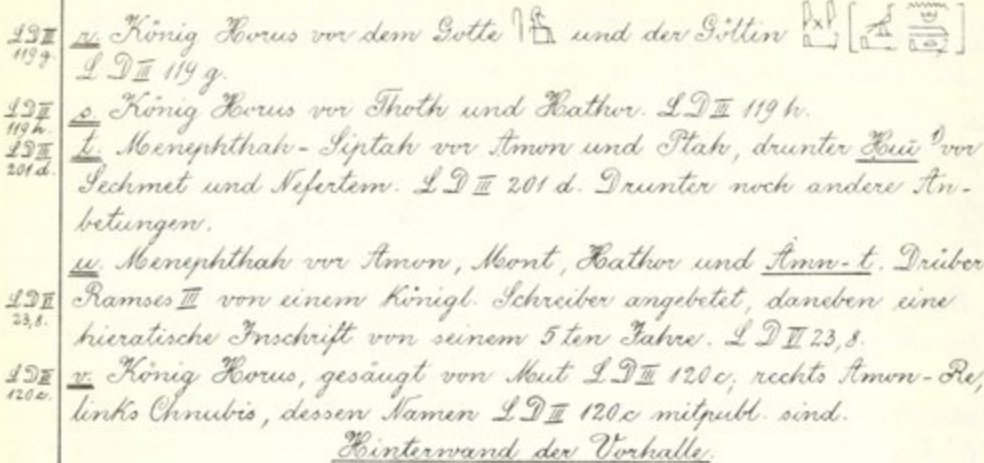 LD III 119 g. r. König Horus vor dem Gotte und der Göttin
L D III 119 g.
LD III 119 h. s. König Horus vor Thoth und Hathor. L D III 119 h.
LD III 201 d. t. Menephthah-Siptah vor Amon und Ptah, drunter Huii 1) vor
Sechmet und Nefertem. L D III 201 d. Drunter noch andere An-
betungen.
u. Menephthah vor Amon, Mont, Hathor und Amn-t. Drüber
LD VI 23,8. Ramses III von einem Königl. Schreiber angebetet, daneben eine
hieratische Inschrift von seinem 5ten Jahre. L D VI 23,8.
LD III 120 c. v. König Horus, gesäugt von Mut L D III 120 c; rechts Amon-Re,
links Chnubis, dessen Namen L D III 120 c mitpubl. sind.
Hinterwand der Vorhalle.